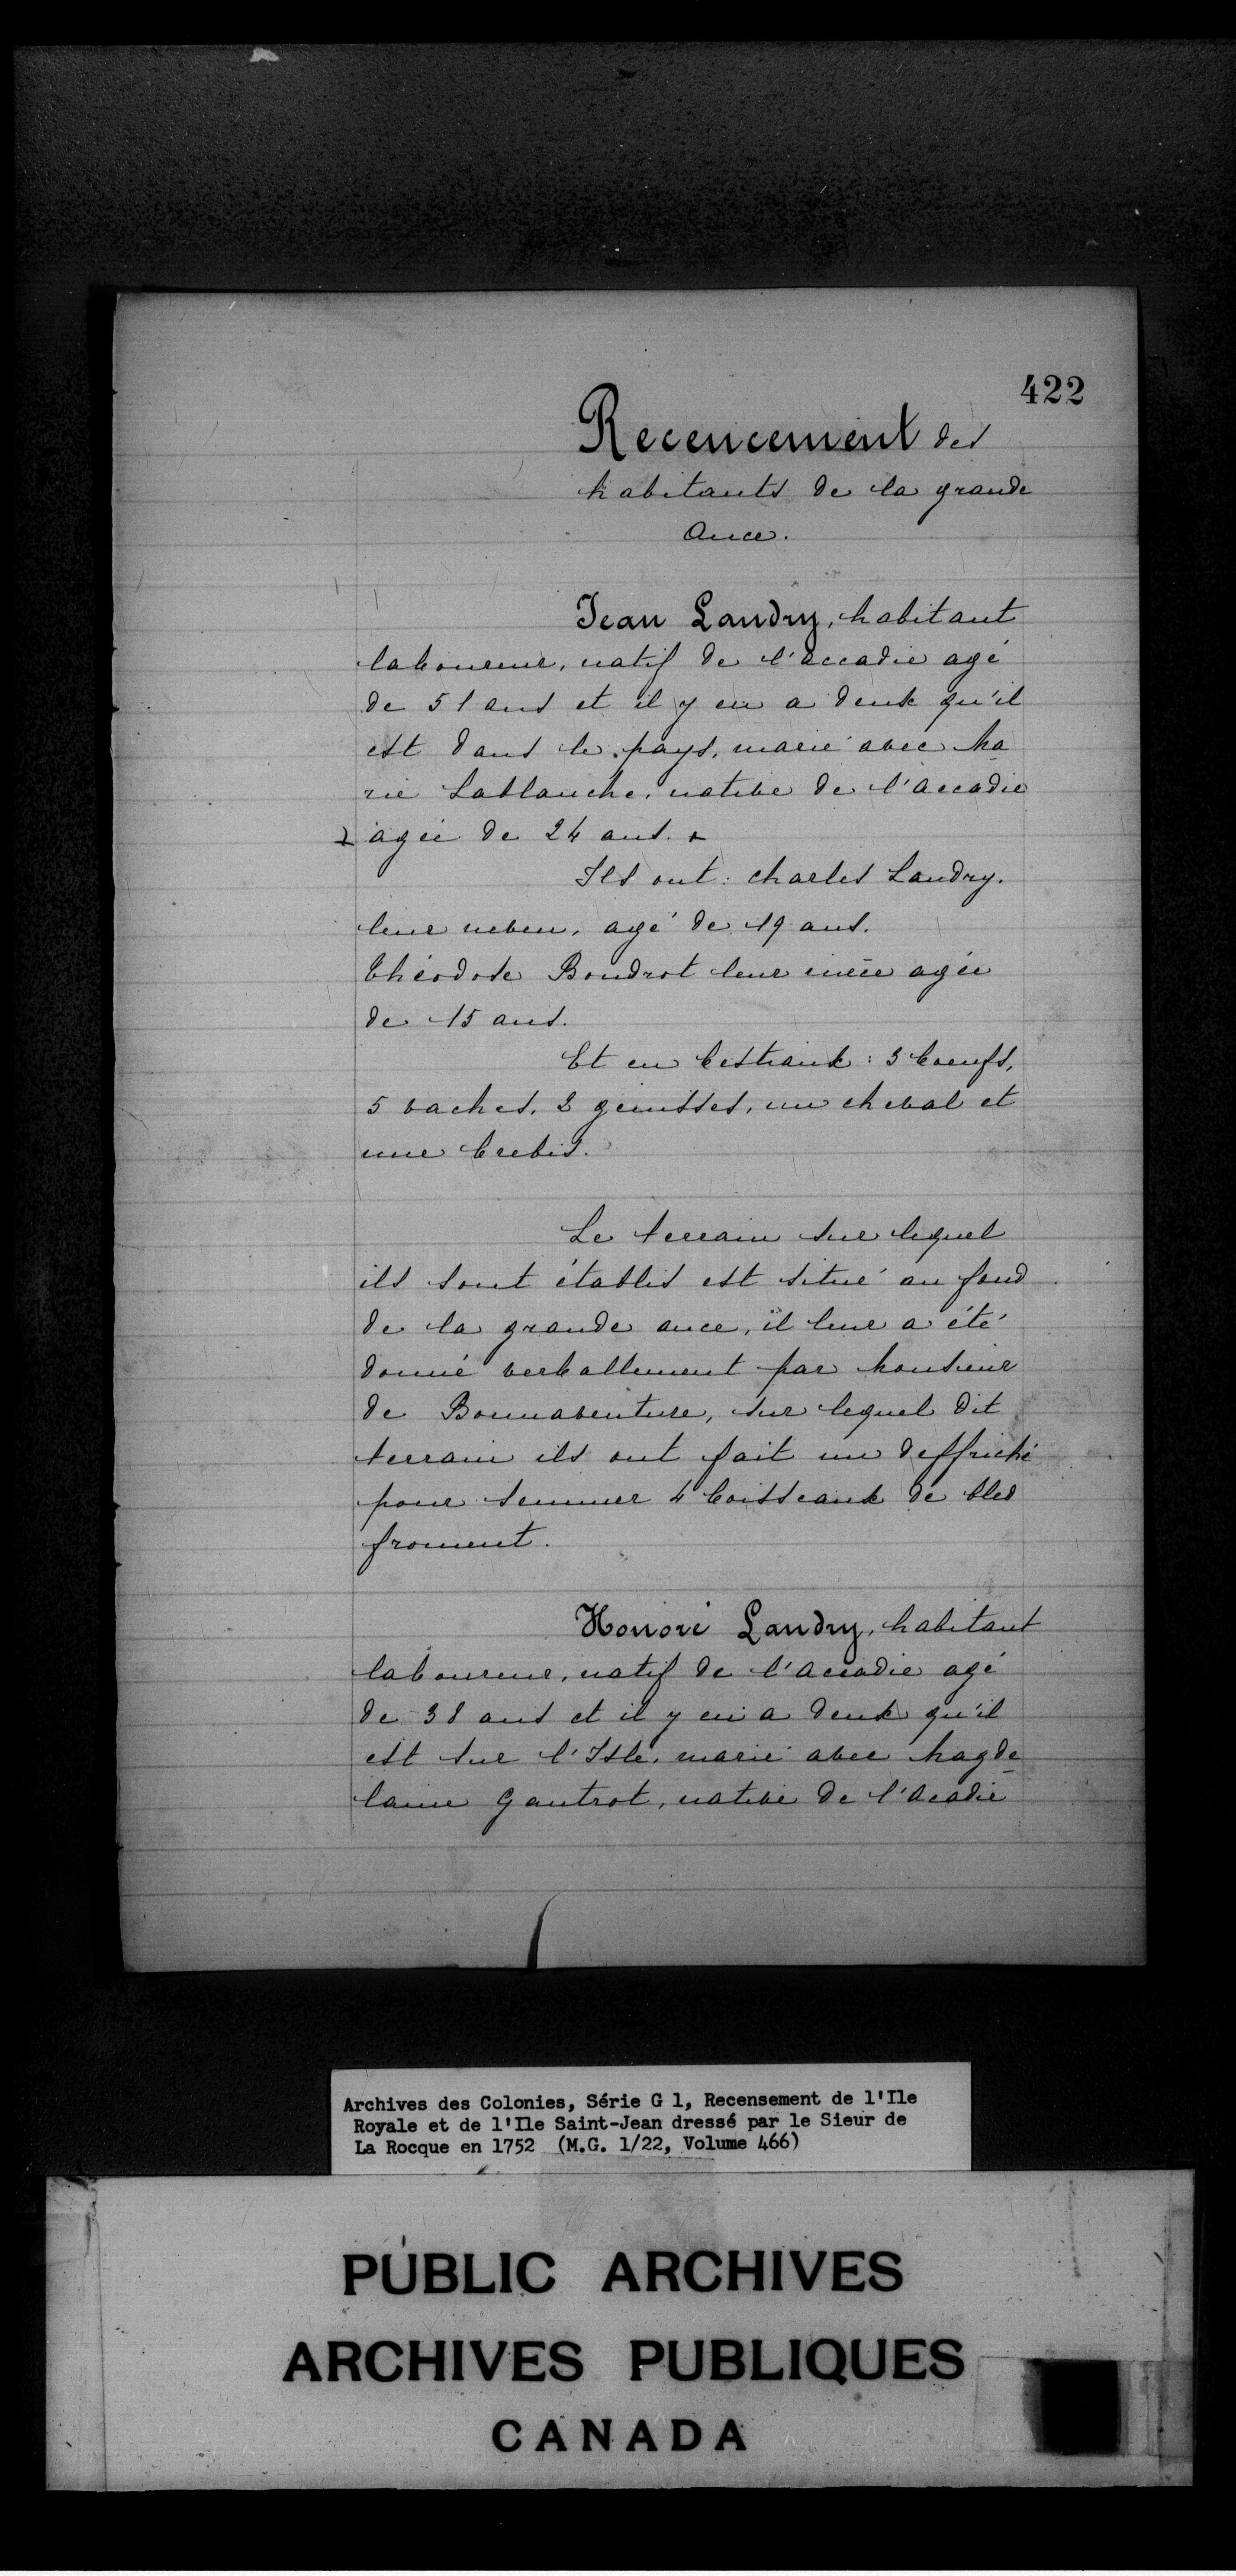 422
Recencement des
habitants de la grande
Ance.
Jean Landry, habitant
laboureur, natif de l'accadie agé
de 51 ans et il y en a deux qu'il
est dans le pays, marié avec Ma
rie Lablauche, native de l'accadie
agée de 24 ans.
Ils ont: charles Landry.
leur neveu, agé de 19 ans.
théodose Boudrot leur niéce agée
de 15 ans.
Et en bestiaux: 3 boeufs,
5 vaches, 2 genisses, un cheval et
une brebis.
Le terrain sur lequel
ils sont établis est situé au fond
de la grande ance, il leur a été
donné verballement par Monsieur
de Bonnaventure, sur lequel dit
terrain ils ont fait un deffriché
pour semmer 4 boisseaux de bled
froment.
Honoré Landry, habitant
laboureur, natif de l'accadie agé
de 38 ans et il y en a deux qu'il
est sur l'Isle, marié avec Magde
laine Gautrot, native de l'Acadie
Archives des Colonies, Série G 1, Recensement de l'Ile
Royale et de l'Ile Saint-Jean dressé par le Sieur de
La Rocque en 1752 (M.G. 1/22, Volume 466)
PUBLIC ARCHIVES
ARCHIVES PUBLIQUES
CANADA